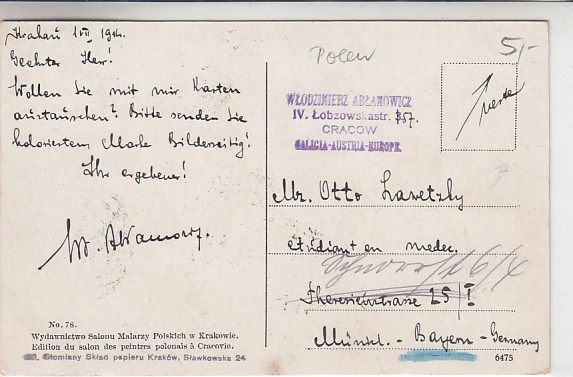 Krakau 1 VII 1914.
Geehrter Herr!
Wollen Sie mit mir Karten
austauschen? Bitte senden Sie
kolorierten, Marke Bilderseitig!
Ihr ergebener!
Wł. Abłamowicz.
No. 78.
Wydawnictwo Salonu Malarzy Polskich w Krakowie.
Edition du salon des peintres polonais à Cracovie.
Słomiany Skład papieru Kraków, Sławkowska 24
Polen
5,-
WŁODZIMIERZ ABŁAMOWICZ
IV. Łobzowskastr. 57.
CRACOW
GALICIA-AUSTRIA-EUROPE.
Mr. Otto Lawetzky
étudiant en medec.
Theresienstrasse 25/I
Münich - Bayern - Germany
6475